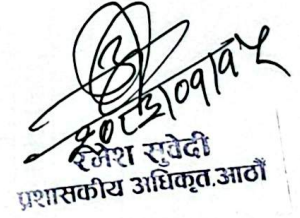 २०८३/०१/१५
रमेश सुवेदी
प्रशासकीय अधिकृत,आठौं